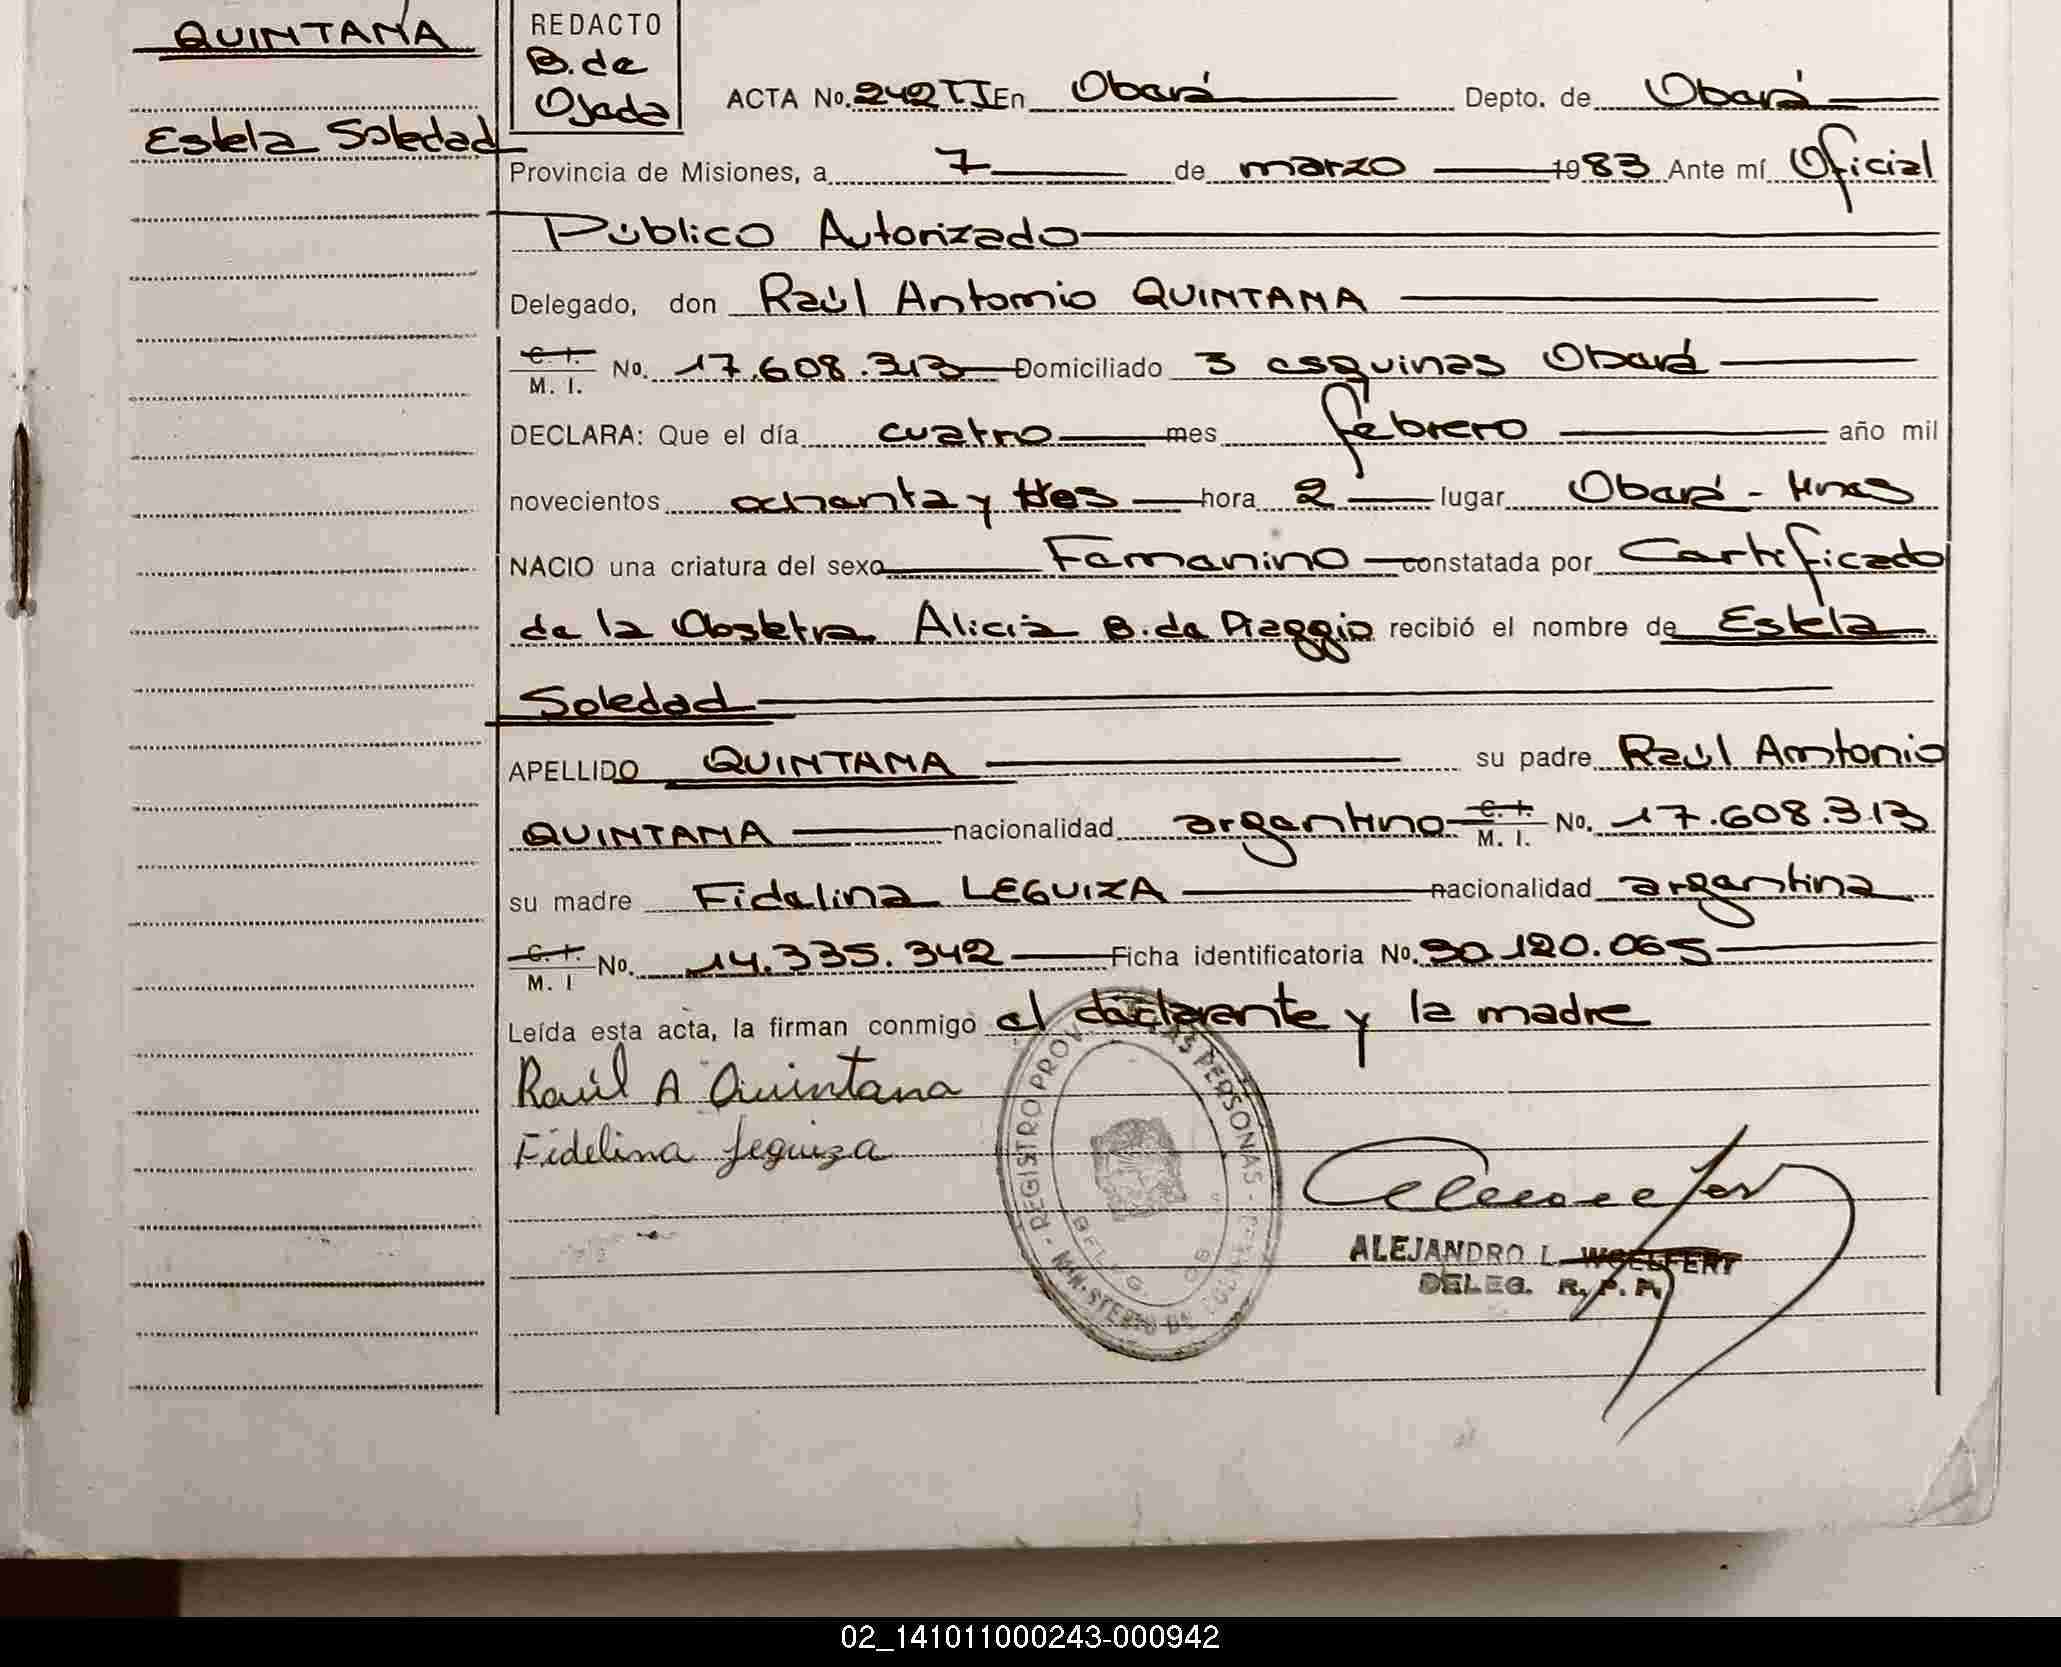 QUINTANA
Estela Soledad
REDACTO
B. de
Ojeda
ACTA No. 242 TI En Oberá Depto. de Oberá
Provincia de Misiones, a 7 de marzo 1983 Ante mí Oficial
Público Autorizado
Delegado, don Raúl Antonio QUINTANA
C. I. M. I. No. 17.608.313 Domiciliado 3 esquinas Oberá
DECLARA: Que el día cuatro mes febrero año mil
novecientos ochenta y tres hora 2 lugar Oberá - Mnes
NACIO una criatura del sexo Femenino constatada por Certificado
de la Obstetra Alicia B. de Piaggio recibió el nombre de Estela
Soledad
APELLIDO QUINTANA su padre Raúl Antonio
QUINTANA nacionalidad argentino C. I. M. I. No. 17.608.313
su madre Fidelina LEGUIZA nacionalidad argentina
C. I. M. I No. 14.335.342 Ficha identificatoria No. 30.120.065
Leída esta acta, la firman conmigo el declarante y la madre
Raúl A Quintana
Fidelina Leguiza
REGISTRO PROV. LAS PERSONAS
MINISTERIO DE
DELEG. OB
ALEJANDRO L. WOELFERT
DELEG. R. P. P.
02_141011000243-000942